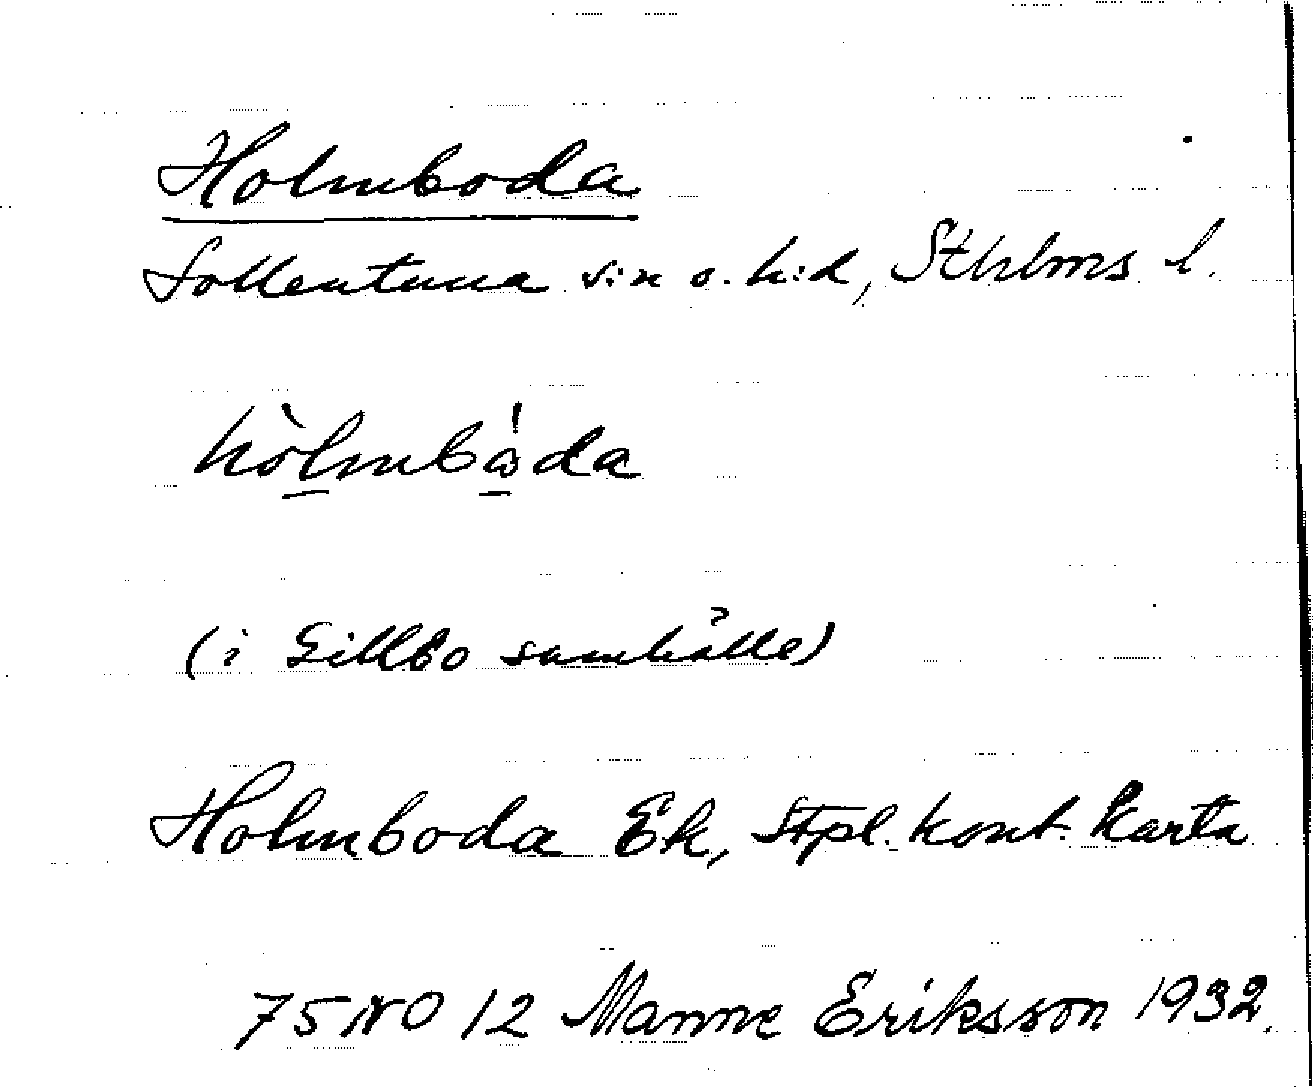 Holmboda
Sollentuna s:n o. h:d, Sthlms l.
hòlmbω̍da
(i Gillbo samhälle)
Holmboda Ek, Stpl. kont. karta
75 NO 12 Manne Eriksson 1932.